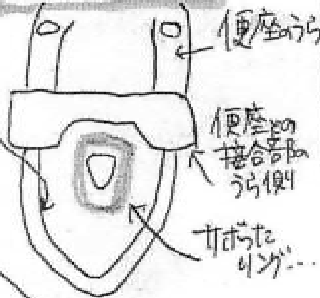 便座のうら
便座との
接合部の
うら側
サボった
リング…